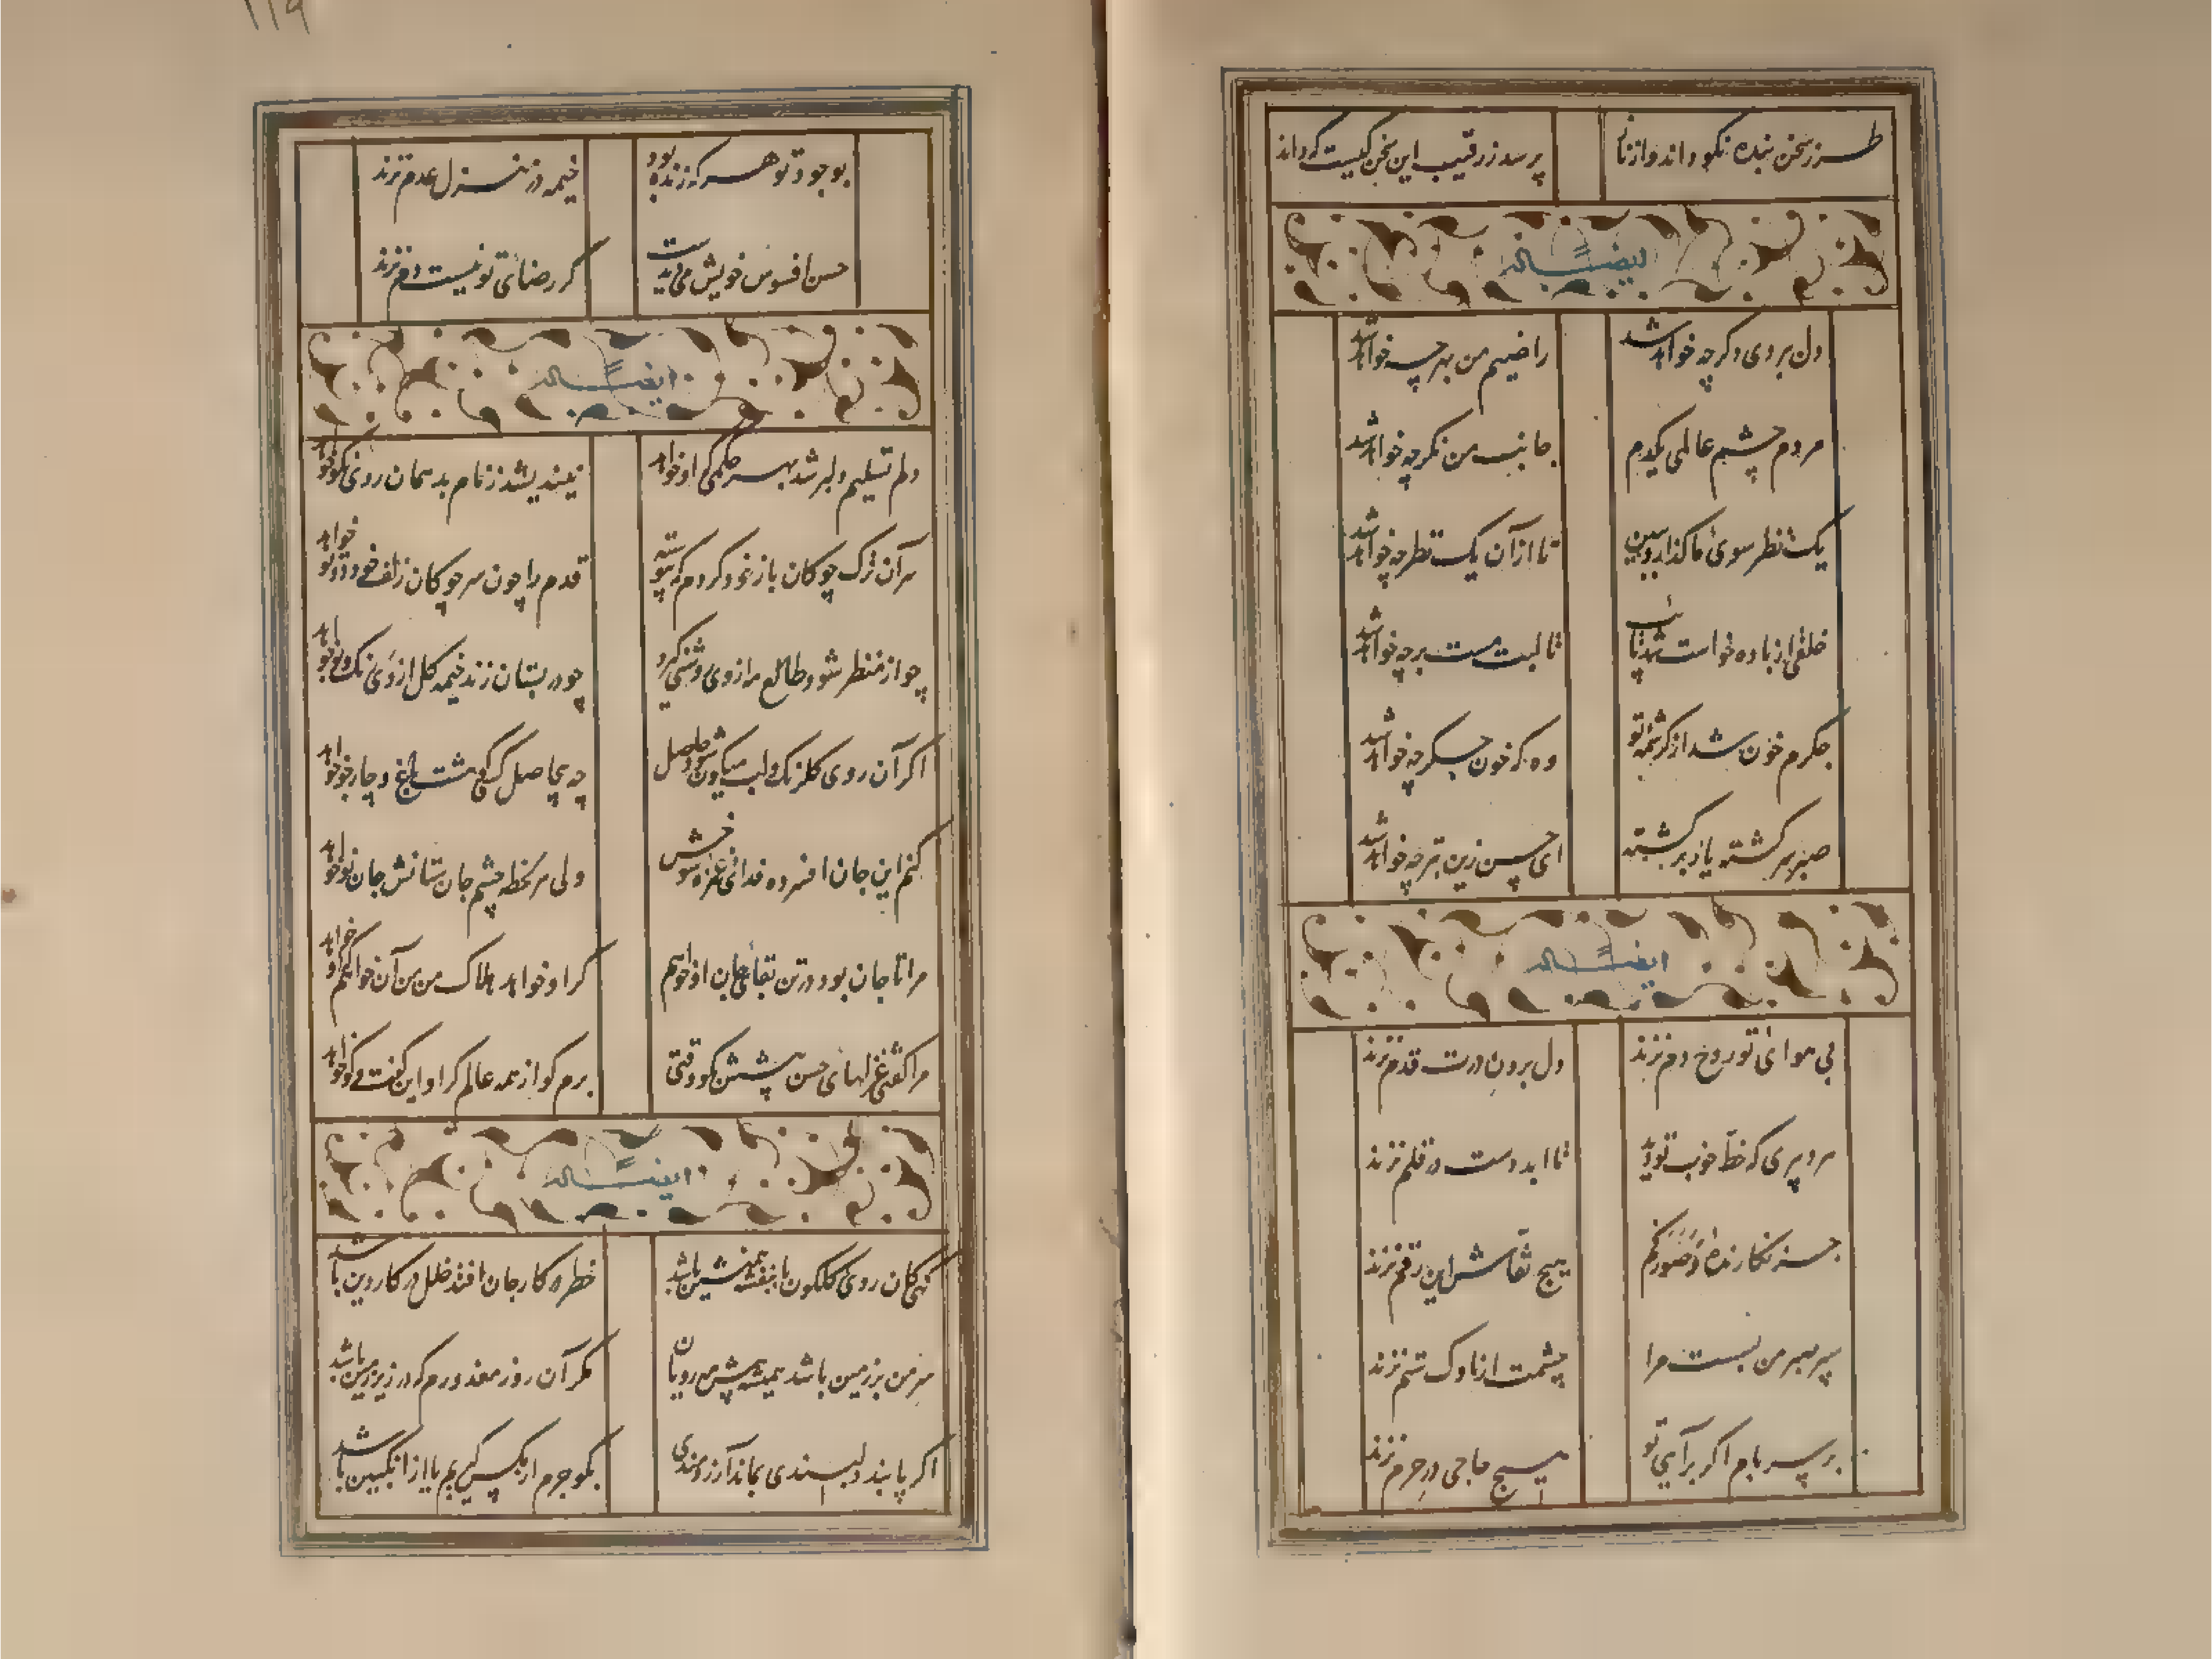 طرز سخن بنده نکو داند و از ناز
پرسد ز رقیب این سخن کیست که داند
ایضاً له
دل بردی دگر چه خواهد شد
راضیم من بهر چه خواهد شد
مردم چشم عالمی یکدم
جانب من نگر چه خواهد شد
یک نظر سوی ما گذار و ببین
تا از آن یک نظر چه خواهد شد
خلقی از باده خواست شد
تا لبت مست بر چه خواهد شد
جگرم خون شد از کرشمه تو
وه که خون جگر چه خواهد شد
صبر برگشته یار برگشته
ای حسن زین بتر چه خواهد شد
ایضاً له
بی هوای تو روح دم نزند
دل برون درت قدم نزند
هر دبیری که خط خوب تو دید
تا ابد دست در قلم نزند
جز نگارنده و صورکم
هیچ نقاش این رقم نزند
سپر صبر من بست مرا
چشمت از ناوک ستم نزند
بر سر بام اگر برآیی تو
هیچ حاجی در حرم نزند
۱۱۹
بوجود تو هر که زنده بود
خیمه در منزل عدم نزند
حسن افسوس خویش می‌دید
گر رضای تو نیست دم نزند
ایضاً له
دلم تسلیم دلبر شد بهر حکمی که او خواهد
نیندیشد ز نام بد همان روی نکو خواهد
سر آن ترک چوگان باز غو کردم که پیوسته
قدم را چون سر چوگان زلف خود دوتو خواهد
چو از منظر شود طالع مرا زو روشنی گیرد
چو در بستان زند خیمه گل از وی رنگ و بو خواهد
اگر آن روی گلرنگ و لب میگون شود حاصل
چه بیحاصل کسی هشت باغ و چار جو خواهد
کنم این جان افسرده فدای غمزه شوخش
ولی هر لحظه چشم جان ستانش جان نو خواهد
مرا تا جان بود در تن بقای جان او خواهم
گر او خواهد هلاک من من آن خواهم که او خواهد
مرا گفتی غزلهای حسن پیشش نگو وقتی
برم گو از همه عالم گر او این گفت و گو خواهد
ایضاً له
کهی کان روی گلگون با بنفشه همنشین باشد
خطر در کار جان افتد خلل در کار دین باشد
سر من بر زمین باشد همیشه پیش مه رویان
مگر آن روز معذورم که در زیر زمین باشد
اگر پابند دلبندی بماند آرزومندی
بگو جرم از مگس گیریم یا از انگبین باشد